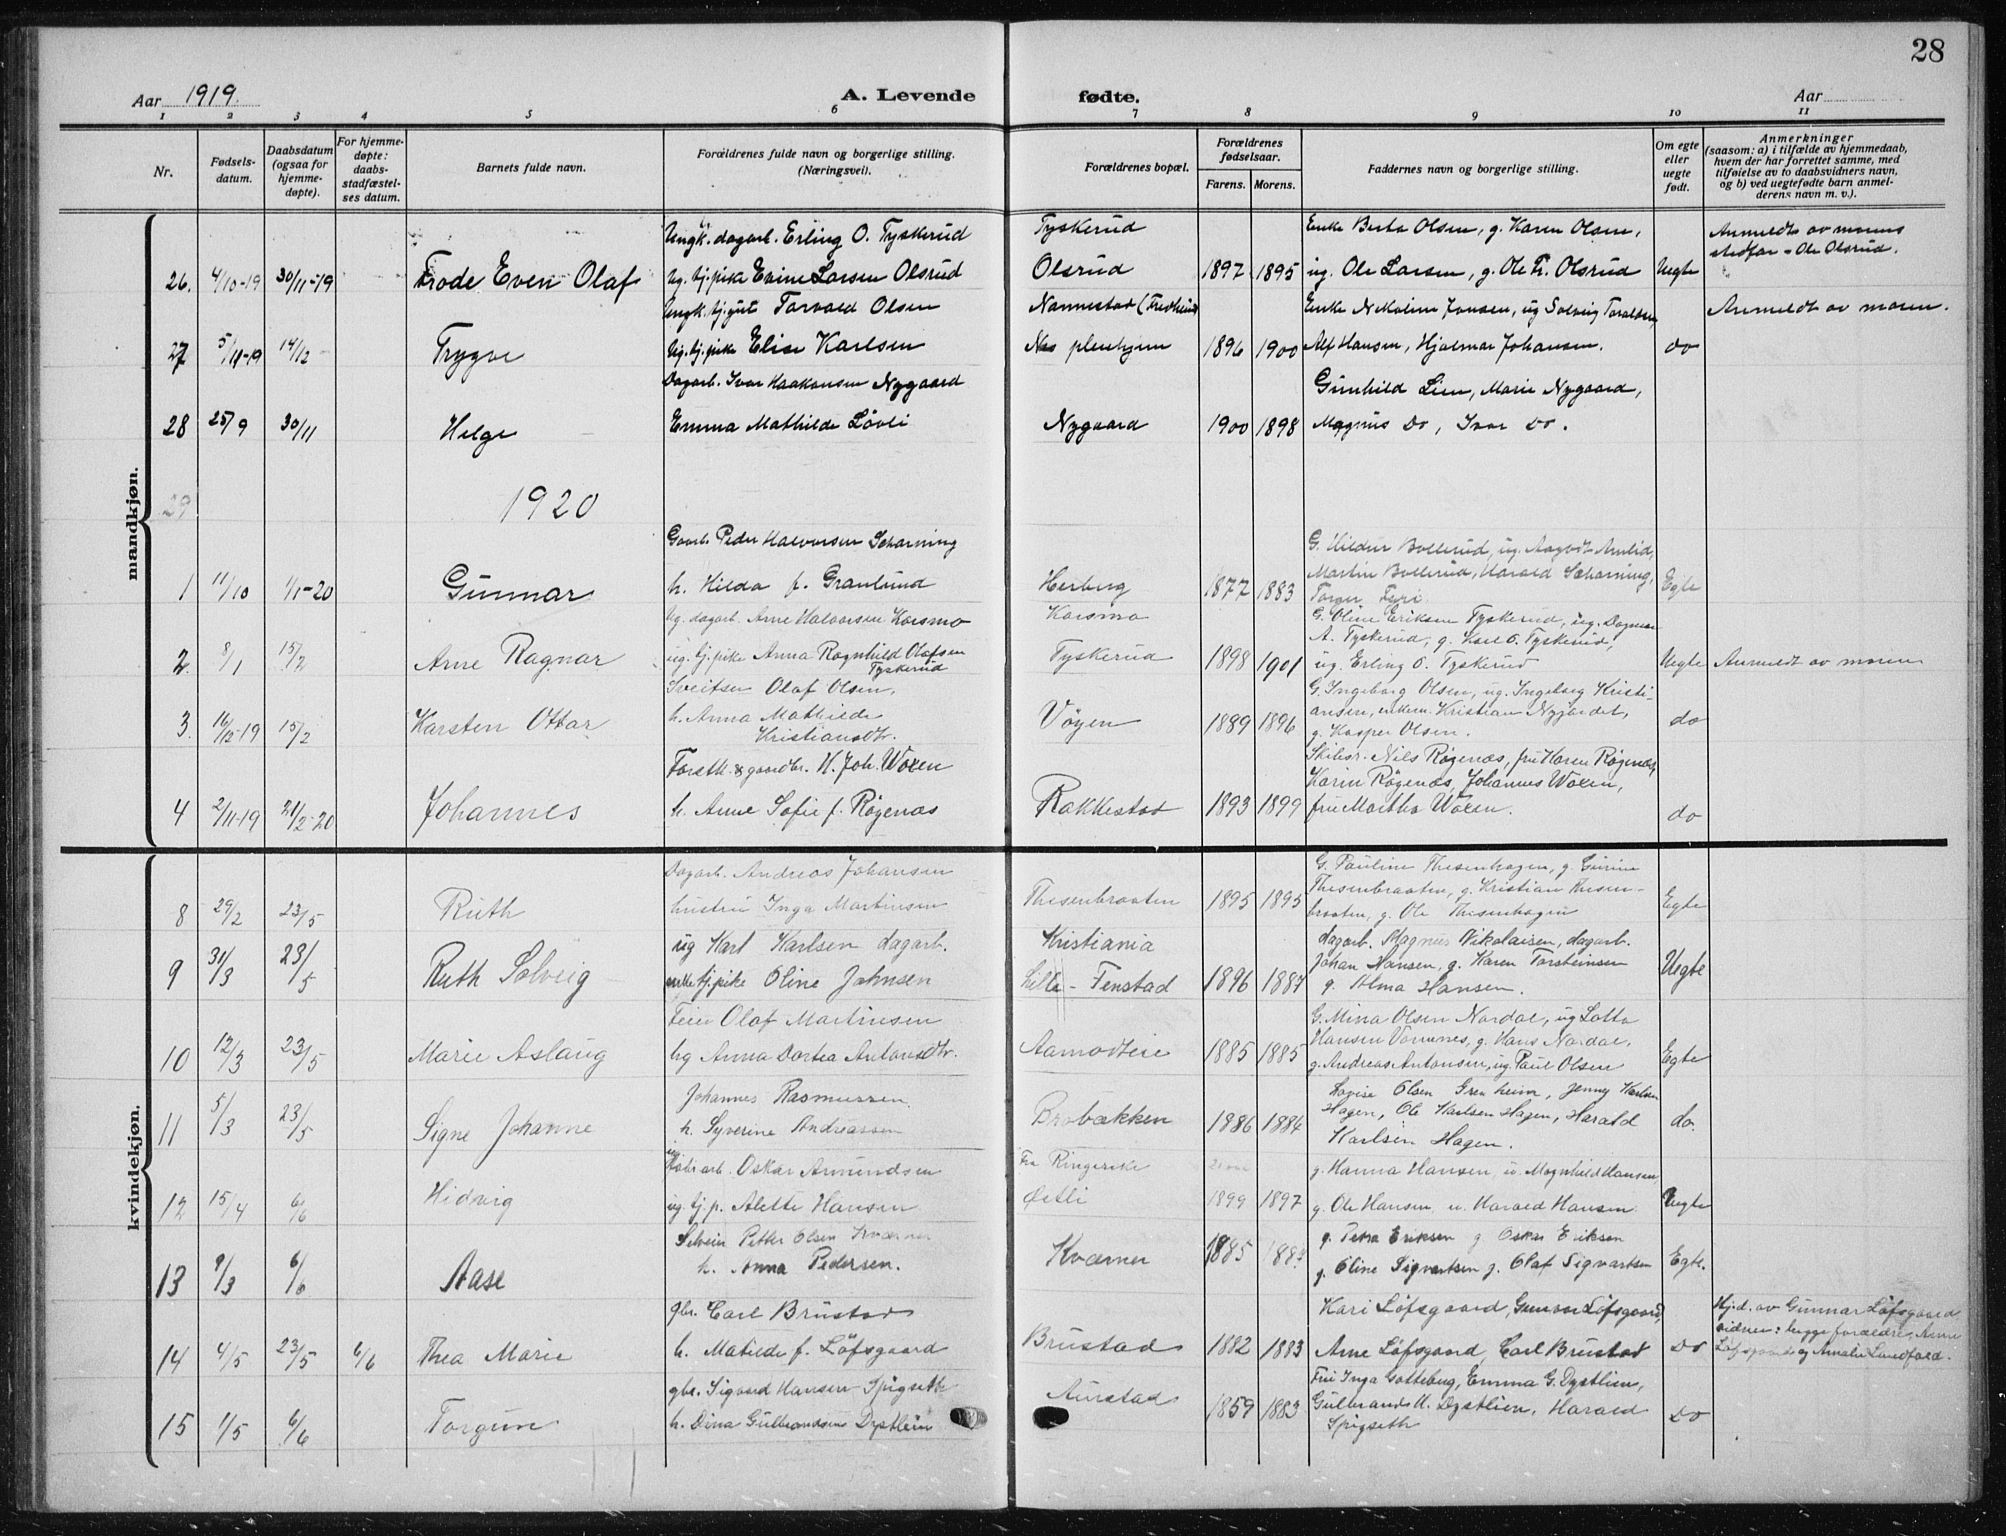 28
Aar 1919.
A. Levende fødte.
Aar
1 2 3 4 5 6 7 8 9 10 11
Nr.
Fødsels-
datum.
Daabsdatum
(ogsaa for
hjemme-
døpte).
For hjemme-
døpte:
daabs-
stadfæstel-
ses datum.
Barnets fulde navn.
Forældrenes fulde navn og borgerlige stilling.
(Næringsvei).
Forældrenes bopæl.
Forældrenes
fødselsaar.
Farens. Morens.
Faddernes navn og borgerlige stilling.
Om egte
eller
uegte
født.
Anmerkninger
(saasom: a) i tilfælde av hjemmedaab,
hvem der har forrettet samme, med
tilføielse av to daabsvidners navn,
og b) ved uegtefødte barn anmel-
derens navn m. v.).
mandkjøn.
Ungk. dagarb. Erling O. Tyskerud Tyskerud Enke Berta Olsen, g. Karen Olsen, Anmeldt av morens
26. 4/10-19 30/11-19 Frode Even Olaf ug. tj.pike Evine Larsen Olsrud Olsrud 1897 1895 ug. Ole Larsen, g. Ole Fr. Olsrud Uegte stedfar - Ole Olsrud.
Ungk. tj.gut Torvald Olsen Nannestad Enke Nikoline Jonsen, ug Solveig Toralsen, Anmeldt av moren.
27 5/11-19 14/12 Trygve ug. tj.pike Elise Karlsen Nes pleiehjem 1896 1900 Alf Hansen, Hjalmar Johansen. do
Dagarb. Ivar Haakonsen Nygaard Gunhild Lien, Marie Nygaard,
28 25/9 30/11 Helge Emma Mathilde Løvli Nygaard 1900 1898 Magnus Do, Ivar Do.
29
1920
Gaarb. Peder Halvorsen Scharning G. Hildur Bollerud, ug. Aagodt Amlid,
1 11/10 1/1-20 Gunnar h. Hilda f. Granlund Herberg 1877 1883 Martin Bollerud, Harald Scharning, Egte
Torger Furi
Ug. dagarb. Arne Halvorsen Korsmo Korsmo G. Oline Eriksen Tyskerud, ug. Dagmar
2. 8/1 15/2 Arne Ragnar ug. tj.pike Anna Ragnhild Olafsen Tyskerud 1898 1901 A. Tyskerud, g. Karl O. Tyskerud, Uegte Anmeldt av moren
Tyskerud ug. Erling O. Tyskerud
Sveitser Olaf Olsen, G. Ingeborg Olsen, ug. Ingeborg Kristi-
3. 16/12-19 15/2 Karsten Ottar h. Anna Mathilde Vøyen 1889 1896 ansen, enkem. Kristian Nygardet, do
Kristiansdtr. g. Kasper Olsen.
Forstk. & gaardbr. H. Joh. Woxen Nils Røgenæs, fru Karen Røgenæs,
4 2/11-19 21/2-20 Johannes h. Anne Sofie f. Røgenæs Rakkestad 1893 1899 Karin Røgenæs, Johannes Woxen, do
fru Martha Woxen.
kvindekjøn.
Dagarb. Andreas Johansen G. Pauline Thesenhagen, g. Gurine
8 29/2 23/5 Ruth hustru Inga Martinsen Thesenbraaten 1895 1895 Thesenbraaten, g. Kristian Thesen- Egte
braaten, g. Ole Thesenhagen
ug Karl Karlsen dagarb. Kristiania dagarb. Magnus Nikolaisen, dagarb.
9 31/3 23/5 Ruth Solveig enke tj.pike Oline Johnsen Lille-Fenstad 1896 1887 Johan Hansen, g. Karen Torsteinsen Uegte
g. Alma Hansen.
Feier Olaf Martinsen G. Mina Olsen Nordal, ug Lotta
10 12/3 23/5 Marie Aslaug hg Anna Dortea Antonsdtr. Aamodteie 1885 1885 Hansen Vormnes, g. Hans Nordal, Egte
g. Andreas Antonsen, ug. Paul Olsen
Johannes Rasmussen Lovise Olsen Grenheim, Jenny Karlsen
11 5/3 23/5 Signe Johanne h. Syverine Andreassen Brobækken 1886 1886 Hagen, Ole Karlsen Hagen, Harald do.
Karlsen Hagen.
ug. Oskar Amundsen Fra Ringerike g. Hanna Hansen, u. Magnhild Hansen
12 15/4 6/6 Hidvig ug. tj.p. Alette Hansen Østli 1899 1897 g. Ole Hansen u. Harald Hansen Uegte
Petter Olsen Kværner g. Petra Eriksen g. Oskar Eriksen
13 9/3 6/6 Aase h. Anna Pedersen. Kværner 1885 g. Oline Sigvartsen g. Olaf Sigvartsen Egte.
gbr. Carl Brustad Kari Løfsgaard, Gunvor Løfsgaard, Hj.d. av Gunnar Løfsgaard
14 4/5 23/5 6/6 Thea Marie h. Matilde f. Løfsgaard Brustad 1882 1883 Arne Løfsgaard, Carl Brustad Do vidner: begge forældre, Arne
Løfsgaard og Amalie Lundfald.
gbr. Sigvard Hansen Spigseth Aurstad Fru Inga Gotteberg, Emma G. Dystlien,
15 1/5 6/6 Torgun h. Dina Gulbrandsen Dystlien 1859 1883 Gulbrand M. Dystlien, Harald Do
Spigseth